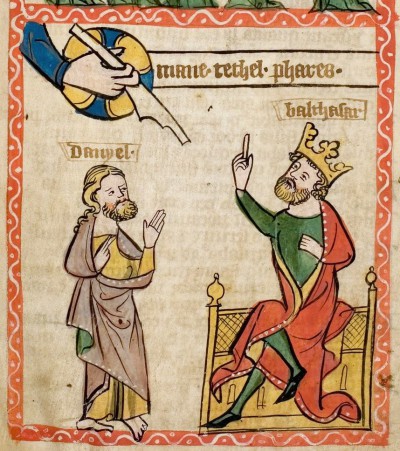 mane · techel · phares ·
Danyel ·
balthasar